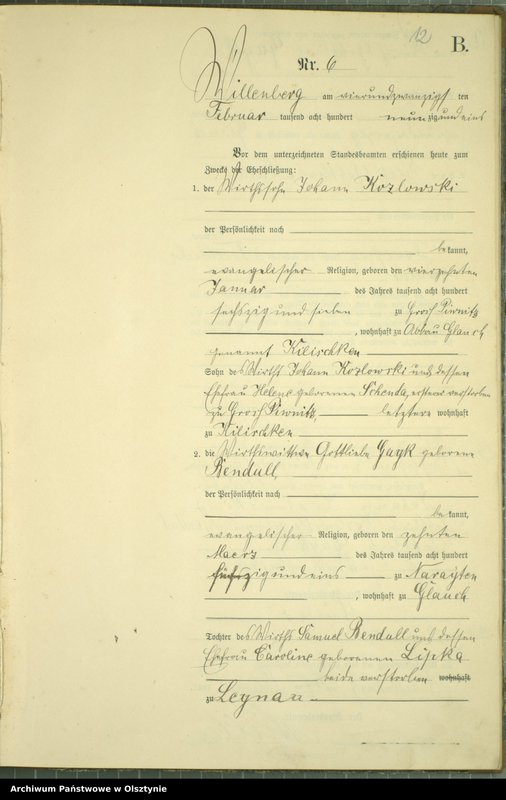 12
B.
Nr. 6
Willenberg am vierundzwanzigsten
Februar tausend acht hundert neunzigundeins
Vor dem unterzeichneten Standesbeamten erschienen heute zum
Zwecke der Eheschließung:
1. der Wirthssohn Johann Kozlowski
der Persönlichkeit nach
bekannt,
evangelischer Religion, geboren den vierzehnten
Januar des Jahres tausend acht hundert
sechszigundsieben zu Gross Piwnitz
, wohnhaft zu Abbau Glauch
genannt Kilischken
Sohn des Wirths Johann Kozlowski und dessen
Ehefrau Helene geborenen Schenda, ersterer verstorben
zu Gross Piwnitz, letztere wohnhaft
zu Kilischken
2. die Wirthswittwe Gottliebe Gayk geborene
Bendull,
der Persönlichkeit nach
bekannt,
evangelischer Religion, geboren den zehnten
Maerz des Jahres tausend acht hundert
fünfzigundeins zu Narayten
, wohnhaft zu Glauch
Tochter des Wirths Samuel Bendull und dessen
Ehefrau Caroline geborenen Lipka
beide verstorben wohnhaft
zu Leynau
Archiwum Państwowe w Olsztynie